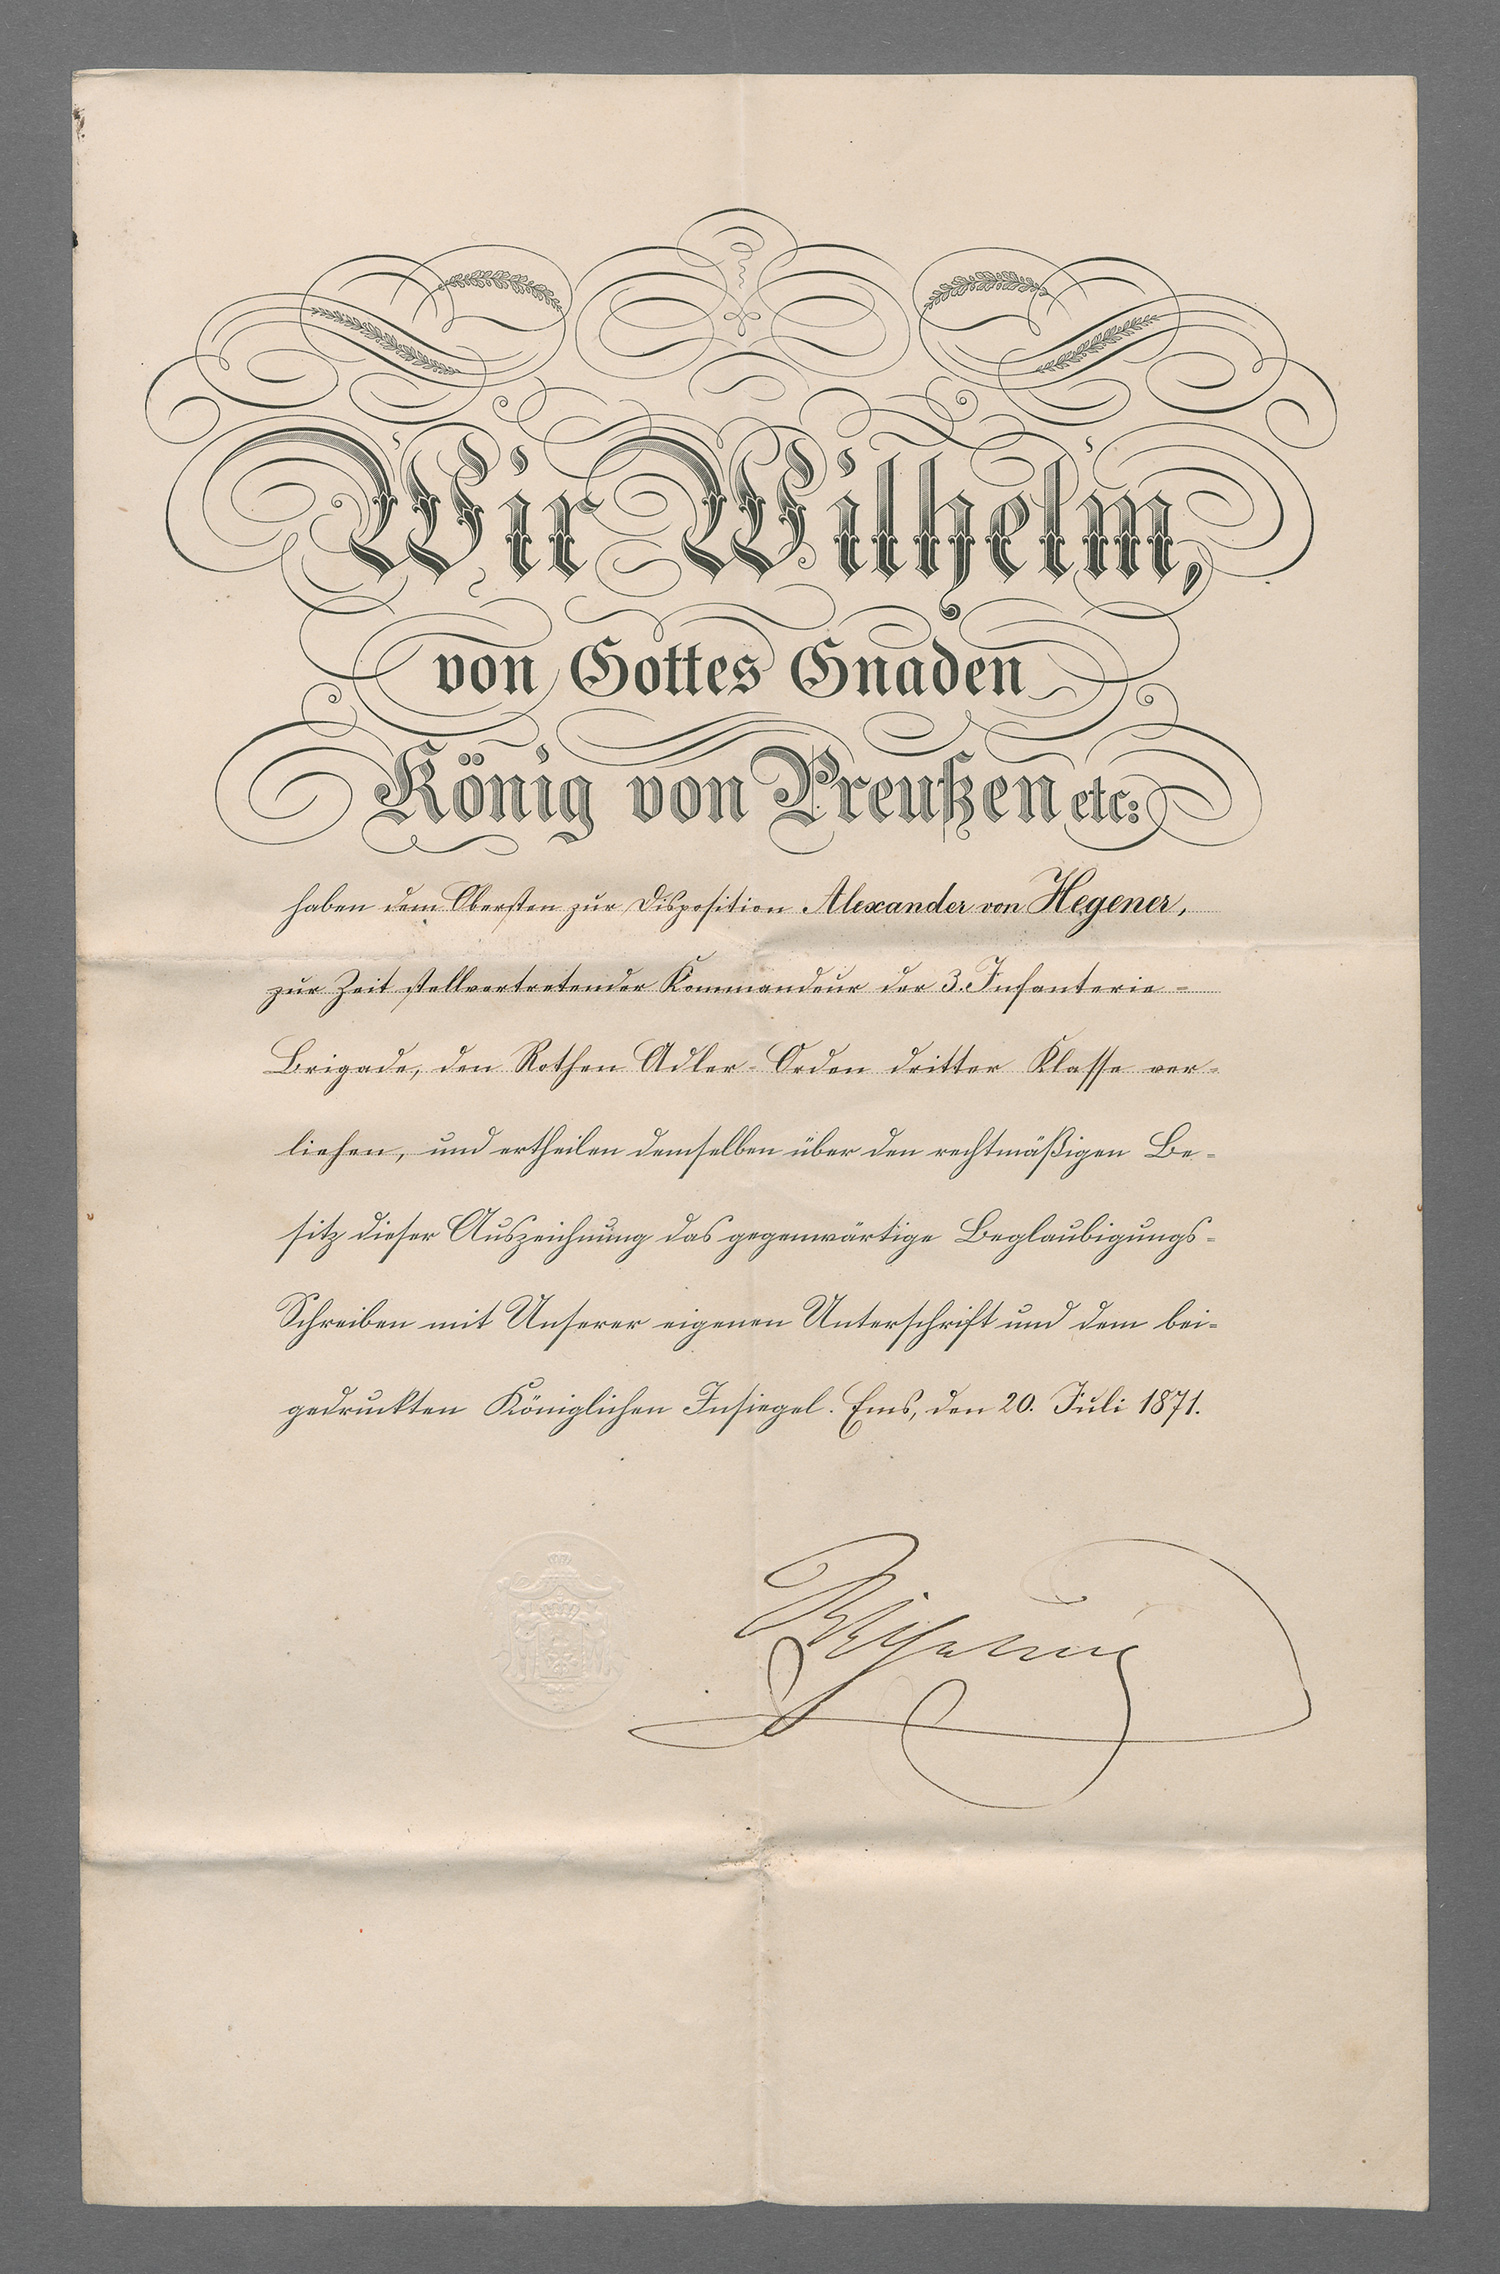 Wir Wilhelm,
von Gottes Gnaden
König von Preußen etc:
haben dem Obersten zur Disposition Alexander von Hegener,
zur Zeit stellvertretender Kommandeur der 3. Infanterie-
Brigade, den Rothen Adler-Orden dritter Klasse ver-
liehen, und ertheilen demselben über den rechtmäßigen Be-
sitz dieser Auszeichnung das gegenwärtige Beglaubigungs-
Schreiben mit Unserer eigenen Unterschrift und dem bei-
gedruckten Königlichen Insiegel. Ems, den 20. Juli 1871.
Wilhelm